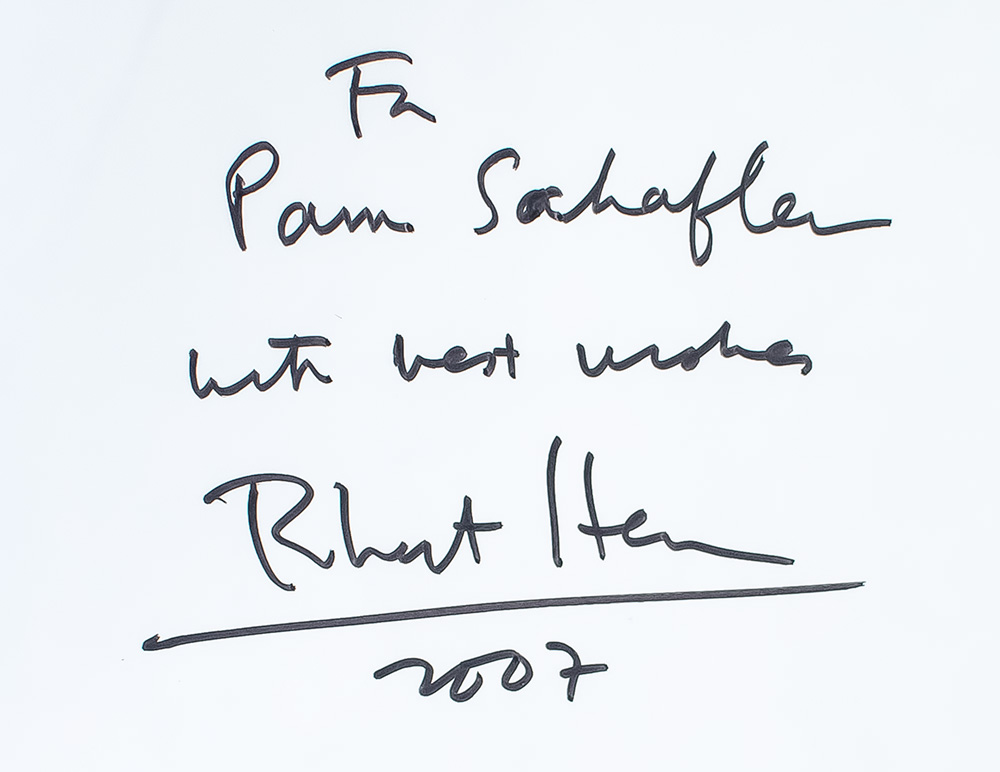 For
Pam Schafler
with best wishes
Robert
2007